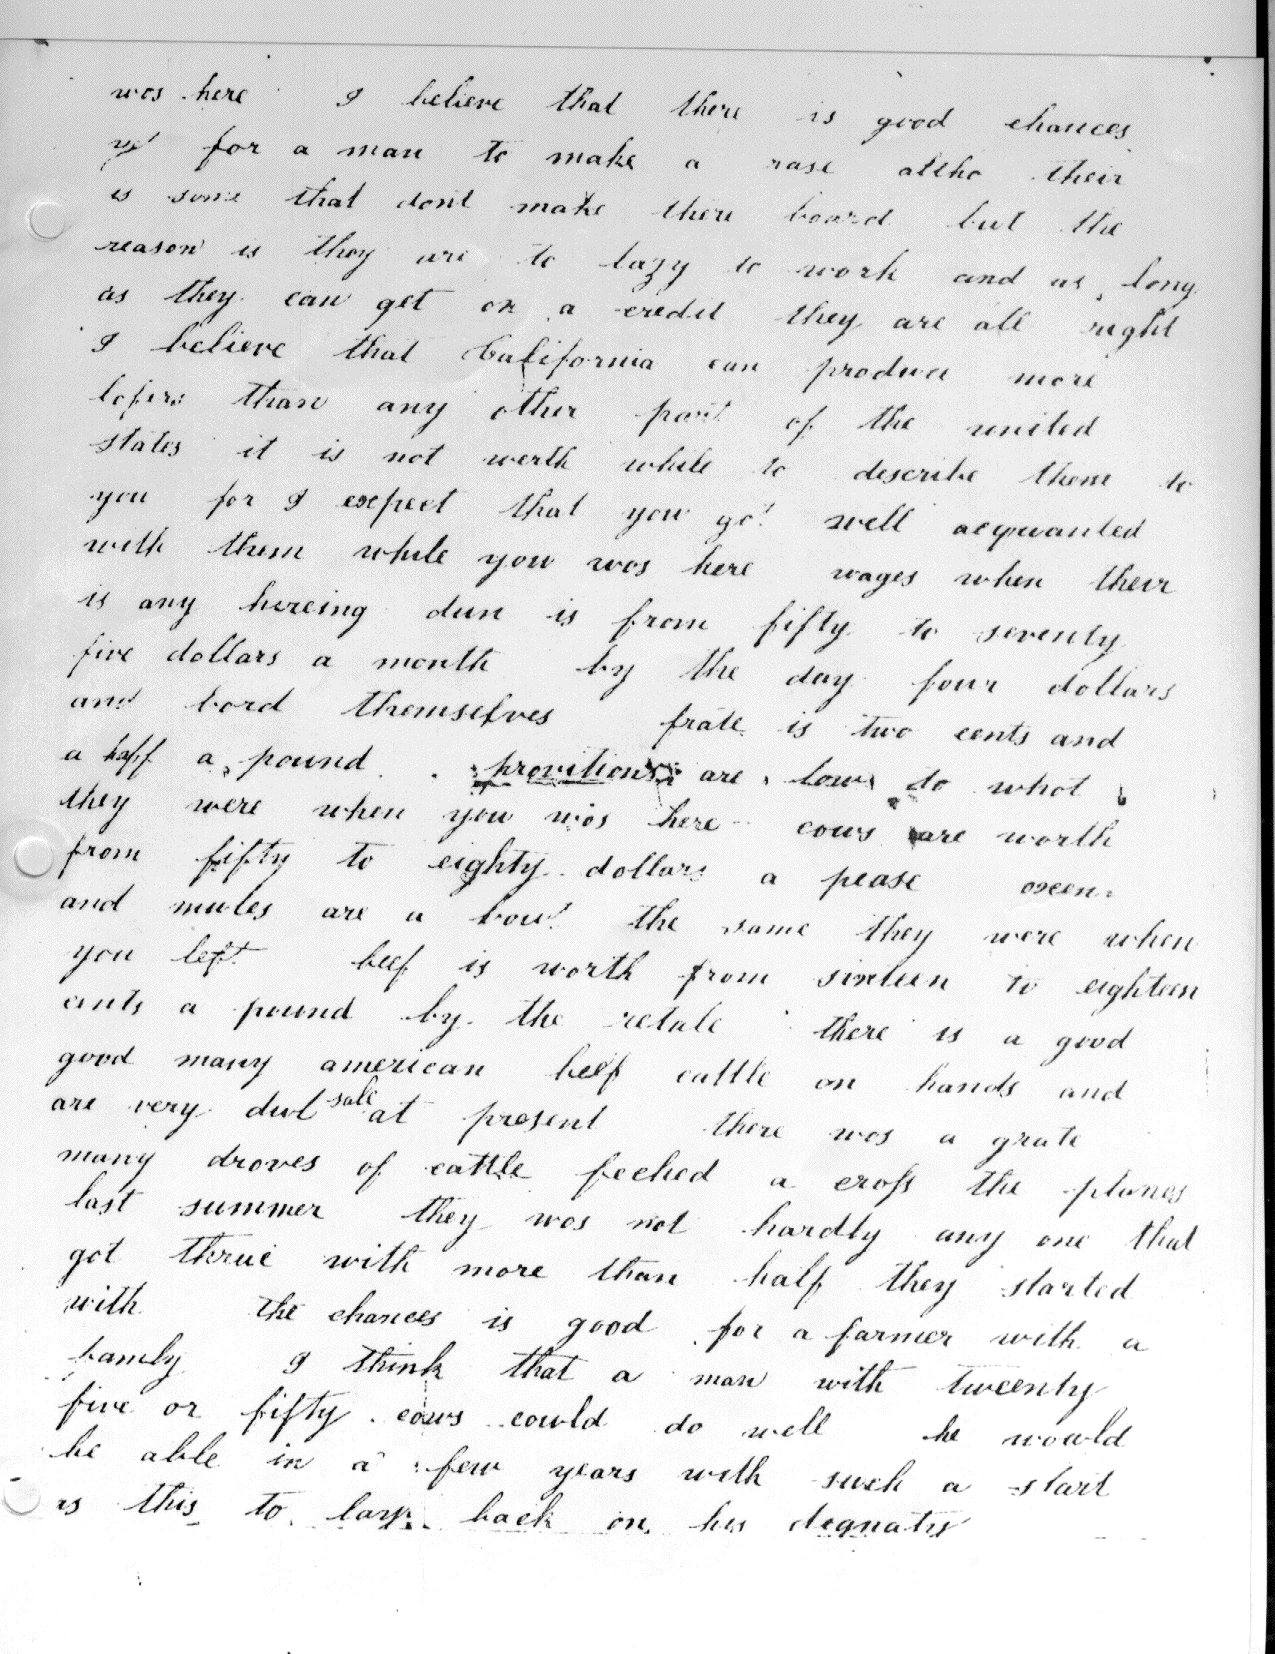 was here I believe that there is good chances
yet for a man to make a rase altho their
is some that dont make there board but the
reason is they are to lazy to work and as long
as they can get on a credit they are all right
I believe that California can produce more
lofers than any other part of the united
states it is not werth while to describe them to
you for I expect that you got well acquanted
with them while you was here wages when their
is any hireing dun is from fifty to seventy
five dollars a month by the day four dollars
and bord themselves frate is two cents and
a half a pound provitions are low to what
they were when you was here cows are worth
from fifty to eighty dollars a pease oxen
and mules are a bout the same they were when
you left beef is worth from sixteen to eighteen
cents a pound by the retale there is a good
good many american beef cattle on hands and
are very dul sale at present there was a grate
many droves of cattle feched a cross the planes
last summer they was not hardly any one that
got thrue with more than half they started
with the chances is good for a farmer with a
family I think that a man with tweenty
five or fifty cows could do well he would
be able in a few years with such a start
as this to lay back on his degnaty